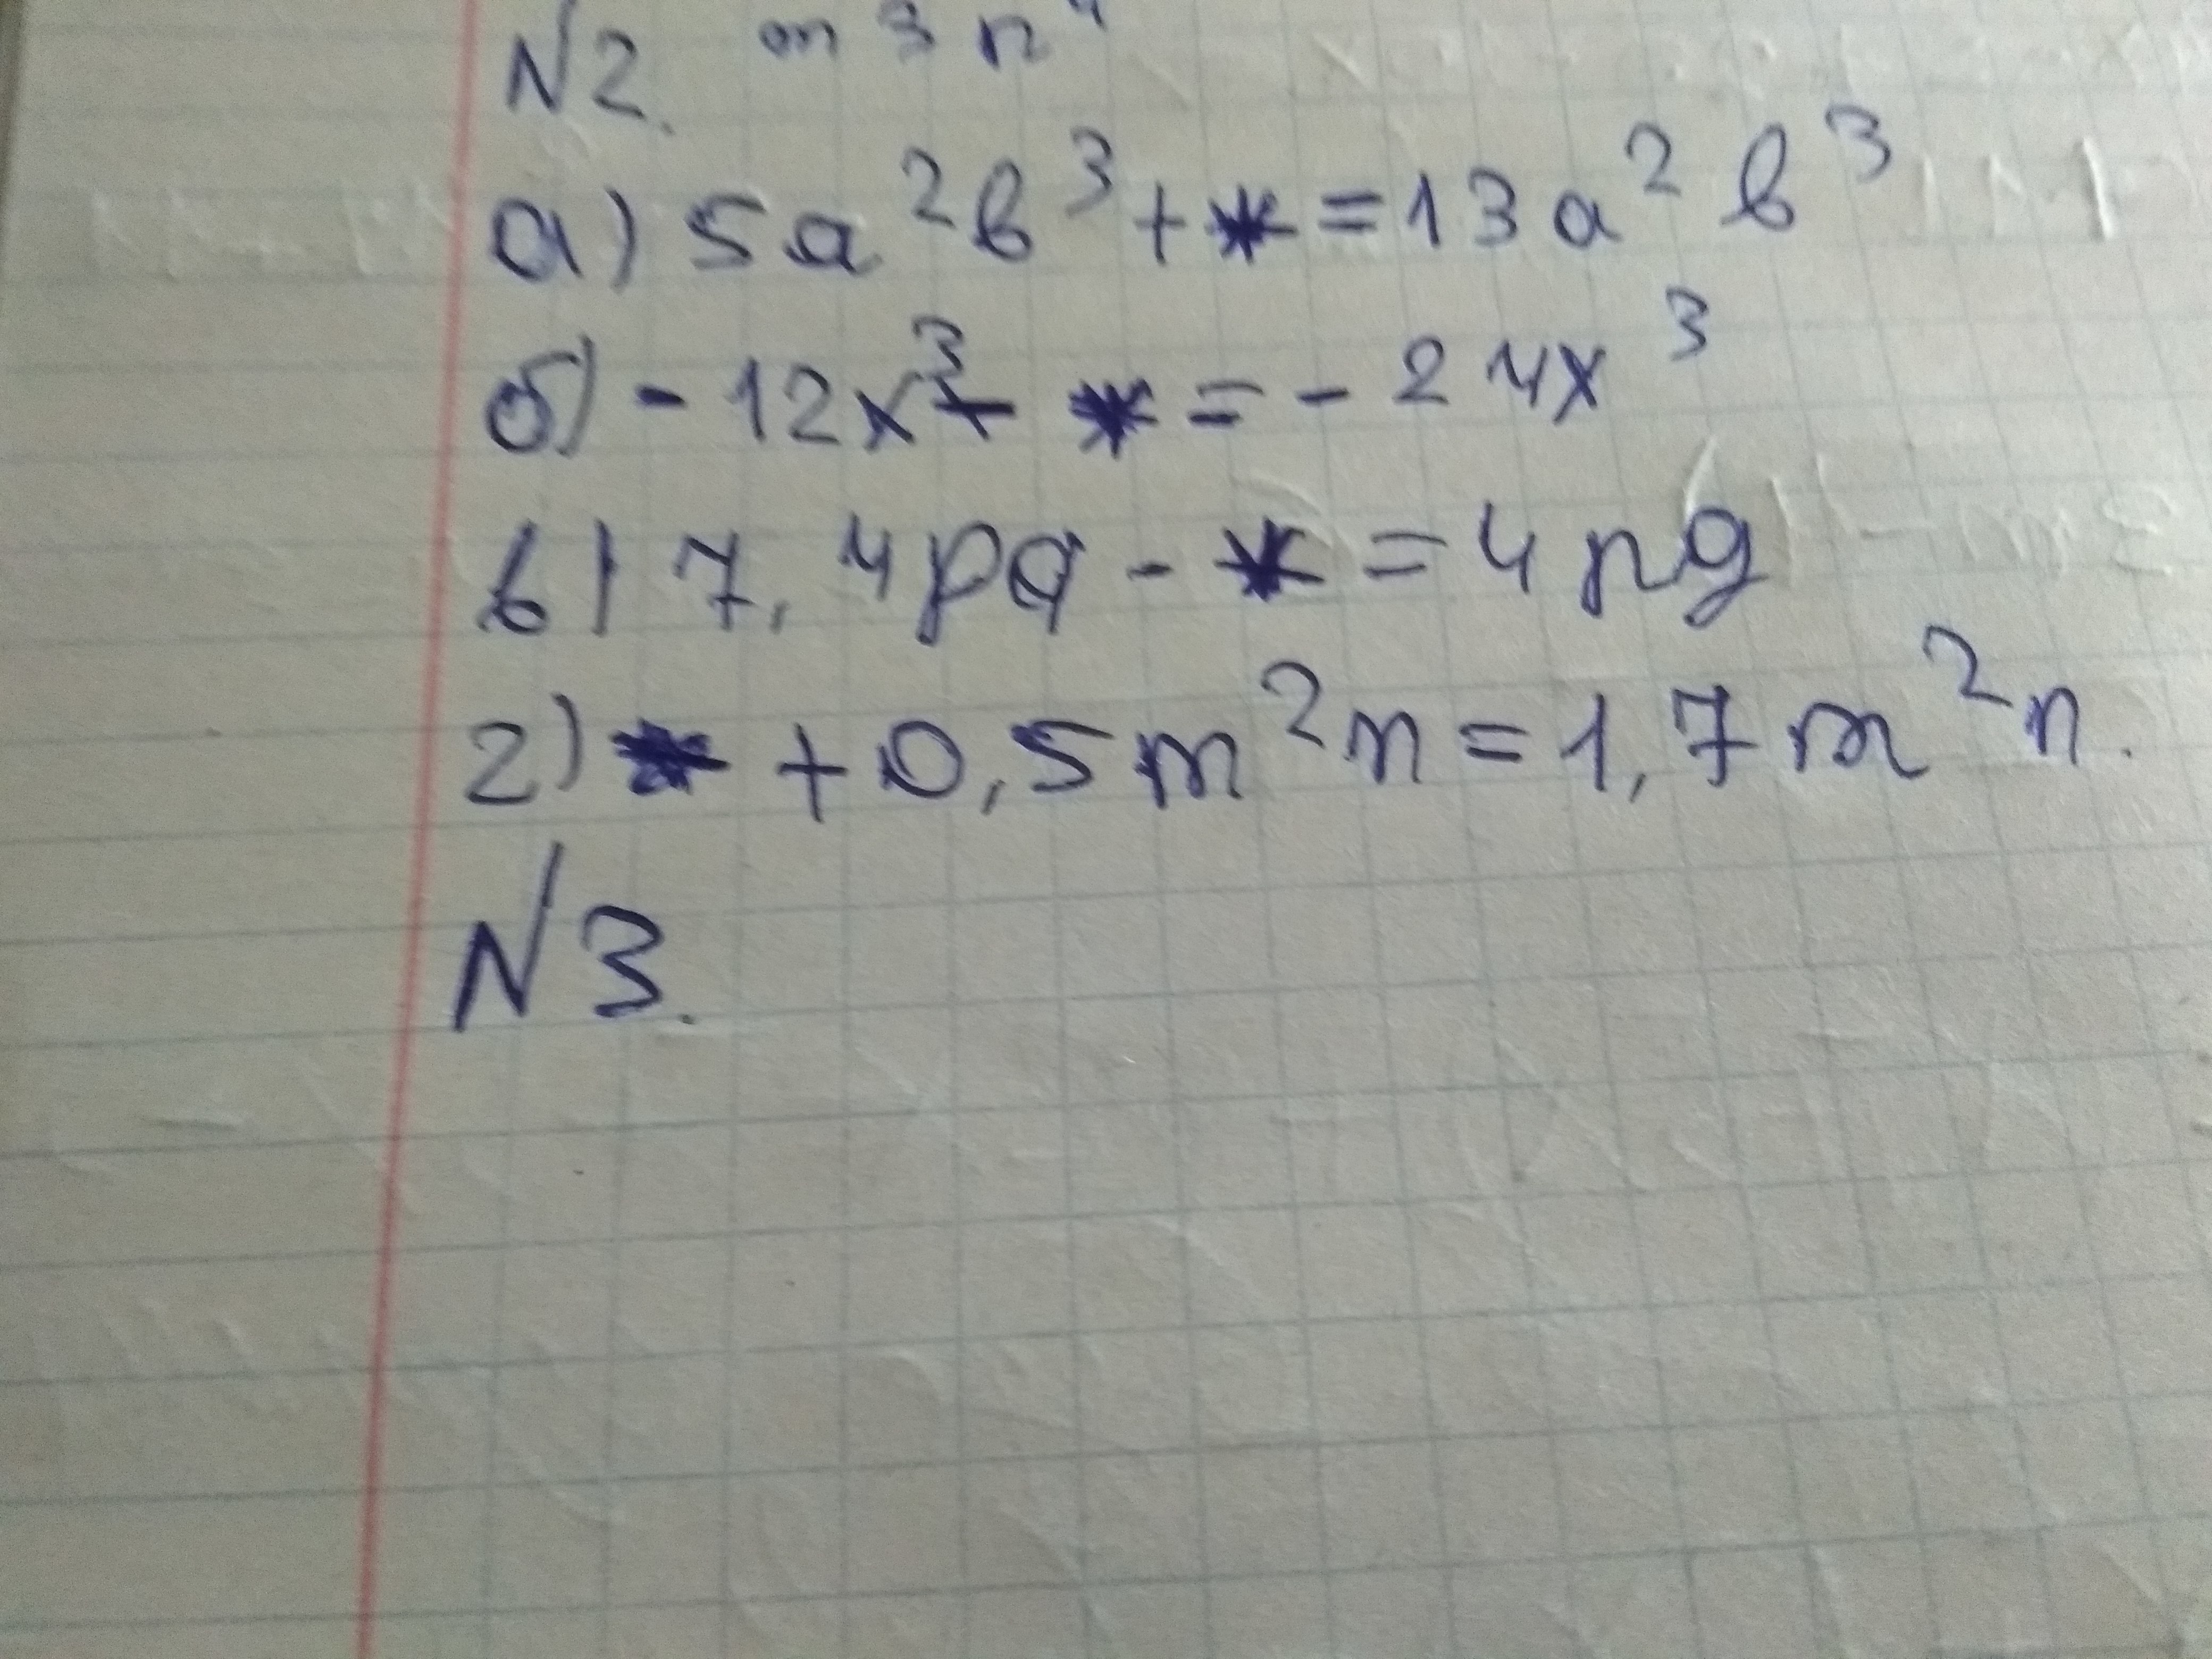 N2. m 3 n⁴
а) 5a²b³ + * = 13a²b³
б) - 12x³ + * = - 24x³
в) 7,4pq - * = 4pq
г) * + 0,5m²n = 1,7m²n.
N3.